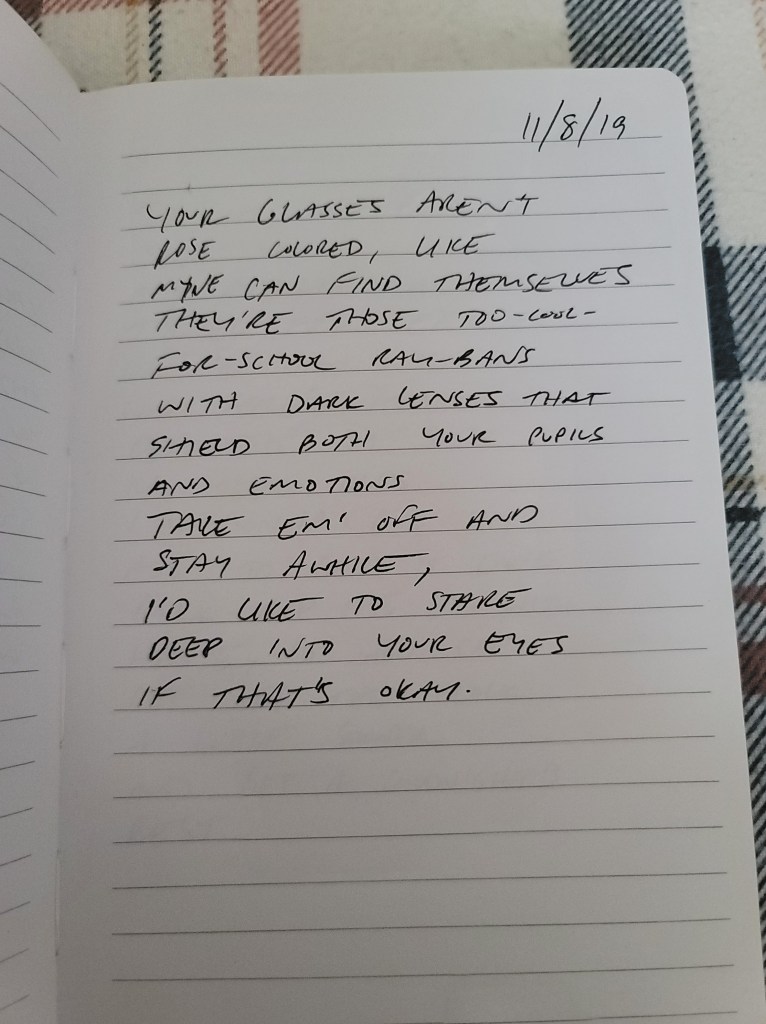 11/8/19
YOUR GLASSES AREN'T
ROSE COLORED, LIKE
MINE CAN FIND THEMSELVES
THEY'RE THOSE TOO-COOL-
FOR-SCHOOL RAY-BANS
WITH DARK LENSES THAT
SHIELD BOTH YOUR PUPILS
AND EMOTIONS
TAKE EM' OFF AND
STAY AWHILE,
I'D LIKE TO STARE
DEEP INTO YOUR EYES
IF THAT'S OKAY.